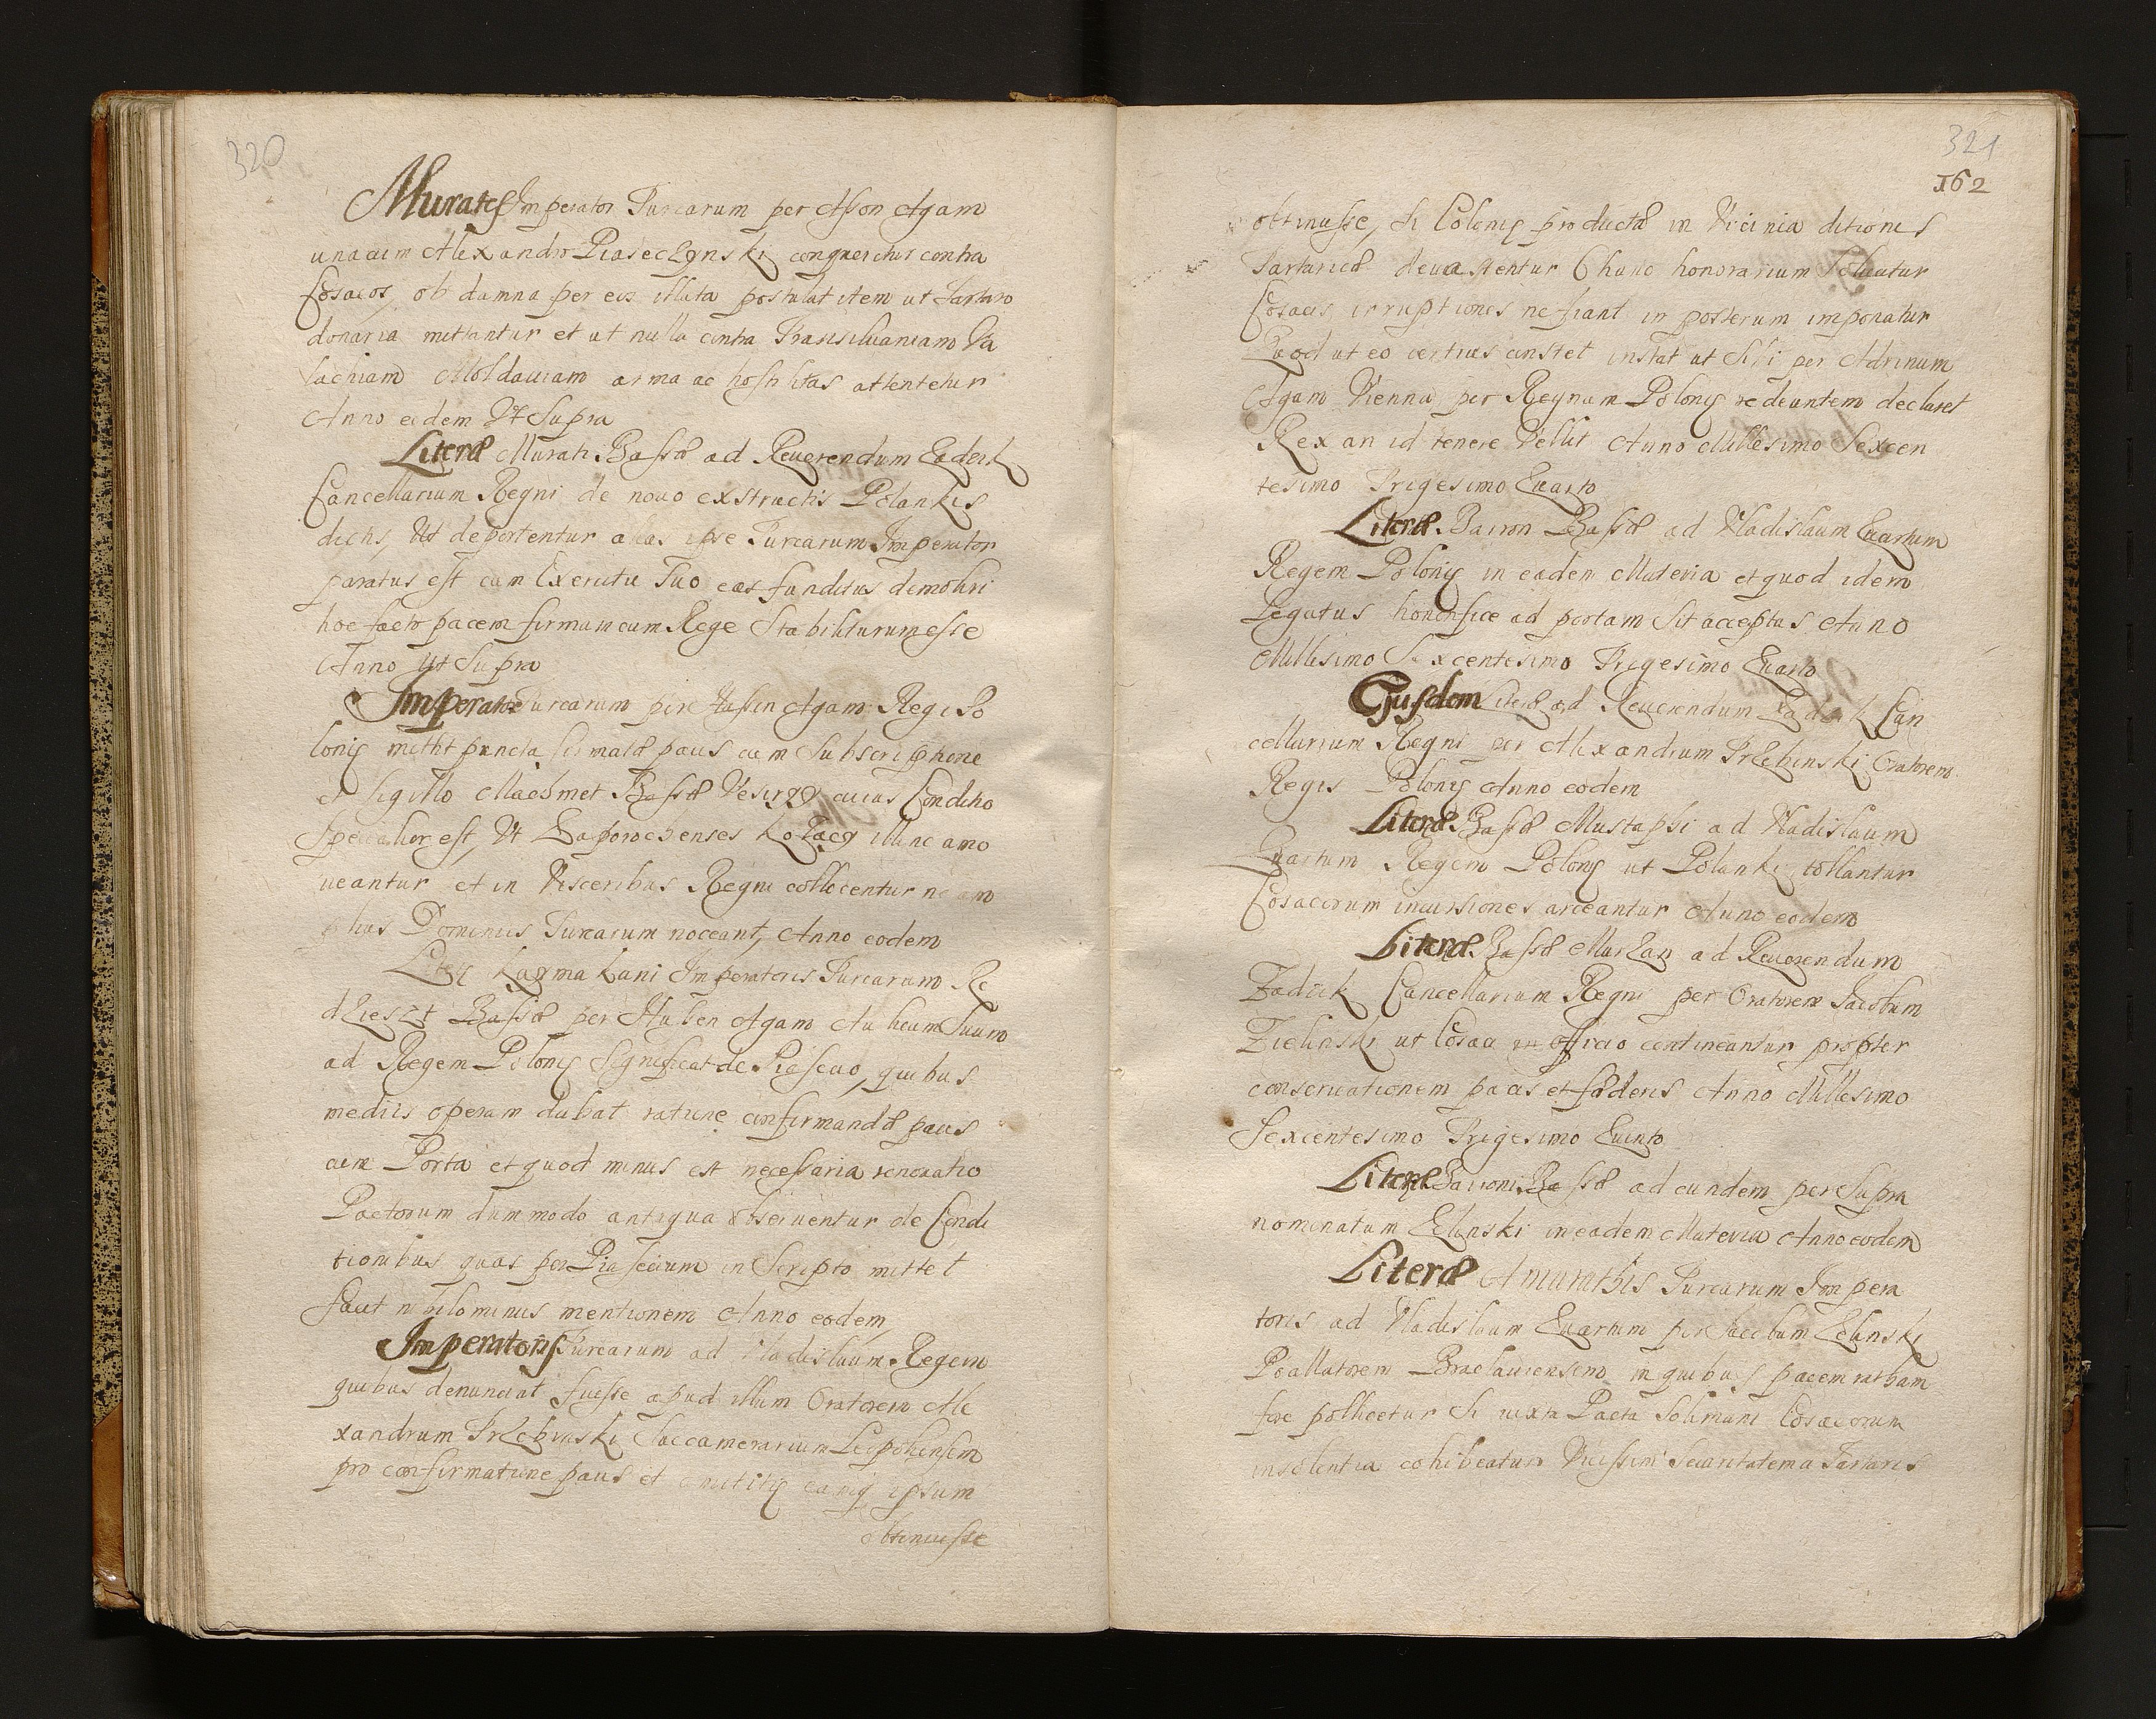 320
Murates Imperator Turcarum per Asson Agam
unacum Alexandro Piaseczynski conqueritur contra
Cosacos, ob damna per eos illata postulat item ut Tartaro
donaria mittantur et ut nulla contra Transiluaniam Va
lachiam Moldauiam arma ac hostilitas attentetur
Anno eodem Vt Supra
Literæ Murati Bassæ ad Reuerendum Zadzik
Cancellarium Regni de nouo exstructis Polankis
dictis, Vt deportentur alias ipse Turcarum Imperator
paratus est cum Exercitu Suo eas funditus demoliri
hoc facto pacem firmam cum Rege Stabiliturum esse
Anno Vt Supra
Imperator Turcarum per Hassin Agam Regi Po
lonię mittit puncta firmatæ pacis cum Subscriptione
et sigillo Maehmet Bassæ Vesirii cuius Conditio
Specialior est, Vt Zaporochenses Kozacy illinc amo
ueantur et in Visceribus Regni collocentur ne am
plius Dominiis Turcarum noceant, Anno eodem
Literę Kaymakani Imperatoris Turcarum Re
dzieszt Bassæ per Huben Agam Aulicum Suum
ad Regem Polonię Significat de Piasecio, quibus
mediis operam dabat ratione confirmandæ pacis
cum Porta et quod minus est necessaria renouatio
Pactorum dummodo antiqua obseruentur de Condi
tionibus quas per Piasecium in Scripto mittet
facit nihilominus mentionem Anno eodem
Imperatoris Turcarum ad Vladislaum Regem
quibus denunciat fuisse apud illum Oratorem Ale
xandrum Trzebinski Succamerarium Leopoliensem
pro confirmatione pacis et ipsum
obtinuisse
321
162
obtinuisse, Si Colonię productæ in Vicinia ditionis
Tartaricæ deuastentur Chano honorarium Soluatur
Cosacis irruptiones ne fiant in posterum imponatur
Quod ut eo certius constet instat ut Sibi per Adrinum
Agam Vienna per Regnum Polonię redeuntem declaret
Rex an id tenere Vellit Anno Millesimo Sexcen
tesimo Trigesimo Quarto
Literæ Bairon Bassæ ad Vladislaum Quartum
Regem Polonię in eadem Materia et quod idem
Legatus honorifice ad portam Sit acceptus Anno
Millesimo Sexcentesimo Trigesimo Quarto
Ejusdem Literæ ad Reuerendum Zadzik Can
cellarium Regni per Alexandrum Trzebinski Oratorem
Regis Polonię Anno eodem
Literæ Bassæ Mustaphi ad Vladislaum
Quartum Regem Polonię ut Polanki tollantur
Cosacorum incursiones arceantur Anno eodem
Literæ Bassæ Murzan ad Reuerendum
Zadzik Cancellarium Regni per Oratorem Jacobum
Zielinski ut Cosaci in officio contineantur propter
conseruationem pacis et fœderis Anno Millesimo
Sexcentesimo Trigesimo Quinto
Literæ Baironi Bassæ ad eundem per Supra
nominatum Zelinski in eadem Materia Anno eodem
Literæ Amurathis Turcarum Impera
toris ad Vladislaum Quartum per Jacobum Zelinski
Pocillatorem Braclauiensem in quibus pacem ratham
fore pollicetur Si iuxta Pacta Solimani Cosacorum
insolentia cohibeatur Vicissim Securitatem a Tartaris